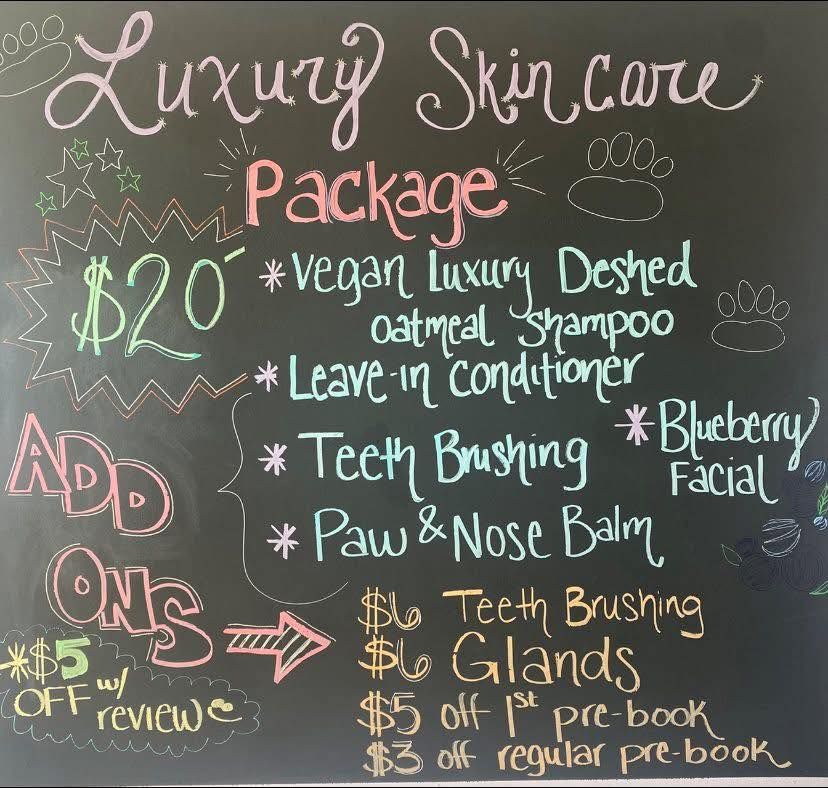 Luxury Skin care
Package
$20
* Vegan Luxury Deshed
oatmeal shampoo
* Leave-in conditioner
* Teeth Brushing
* Blueberry
Facial
* Paw & Nose Balm
ADD
ONS
$6 Teeth Brushing
$6 Glands
$5 off 1st pre-book
$3 off regular pre-book
*$5
OFF w/
review